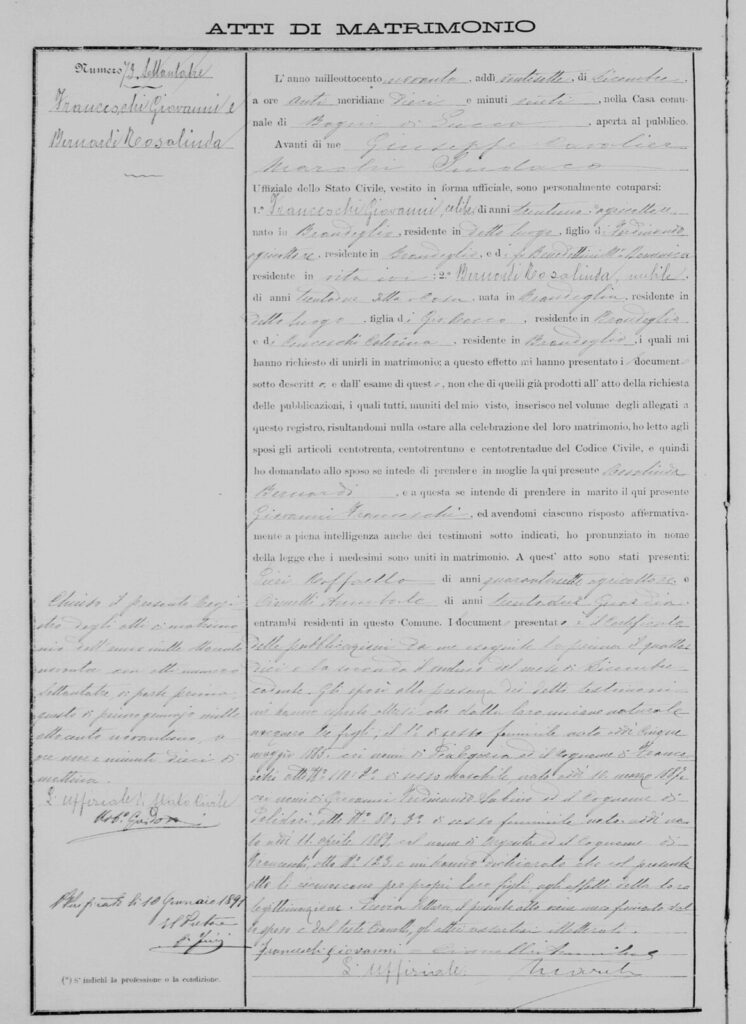 ATTI DI MATRIMONIO
Numero 73. Settantatre
Franceschi Giovanni e
Bernardi Rosalinda
L' anno milleottocento novanta, addì ventisette, di Dicembre,
a ore anti meridiane Dieci e minuti venti, nella Casa comu-
nale di Bagni di Lucca, aperta al pubblico.
Avanti di me Giuseppe Cavalier
Marchi Sindaco
Uffiziale dello Stato Civile, vestito in forma ufficiale, sono personalmente comparsi:
1.° Franceschi Giovanni, celibe, di anni trentuno agricoltore
nato in Brandeglio, residente in detto luogo, figlio di Ferdinando
agricoltore, residente in Brandeglio, e di Benedettini Domenica
residente in vita ivi; 2.° Bernardi Rosalinda, nubile,
di anni trentadue atta a casa, nata in Brandeglio, residente in
detto luogo, figlia di residente in Brandeglio
e di Caterina, residente in Brandeglio, i quali mi
hanno richiesto di unirli in matrimonio; a questo effetto mi hanno presentato i document
sotto descritto e dall' esame di questo, non che di quelli già prodotti all' atto della richiesta
delle pubblicazioni, i quali tutti, muniti del mio visto, inserisco nel volume degli allegati a
questo registro, risultandomi nulla ostare alla celebrazione del loro matrimonio, ho letto agli
sposi gli articoli centotrenta, centotrentuno e centotrentadue del Codice Civile, e quindi
ho domandato allo sposo se intede di prendere in moglie la qui presente Rosalinda
Bernardi, e a questa se intende di prendere in marito il qui presente
Giovanni Franceschi, ed avendomi ciascuno risposto affermativa-
mente a piena intelligenza anche dei testimoni sotto indicati, ho pronunziato in nome
della legge che i medesimi sono uniti in matrimonio. A quest' atto sono stati presenti:
Raffaello di anni agricoltore e
di anni trentadue Guardia
entrambi residenti in questo Comune. I document presentato è il Certificato
delle pubblicazioni da me eseguite la prima il quattor
dici e la seconda il ventuno del mese di Dicembre
corrente. Gli sposi alla presenza dei detti testimoni
mi hanno che dalla loro unione naturale
nacquero tre figli; il 1° di sesso femminile nato addì cinque
maggio 1885 coi nomi di ed il Cognome di France
schi atto N° 2° di sesso maschile nato addì 11 marzo
coi nomi di Giovanni Ferdinando Sabino ed il Cognome di
atto N° 80; 3° di sesso femminile nato addì
11 aprile 1889 col nome di Argenta ed il Cognome di
atto N° 123 e mi hanno dichiarato che col presente
atto li riconoscono per propri loro figli, agli effetti della loro
legittimazione. Lettura il presente atto viene meco firmato dal
sposo e dal teste gli altri illetterati.
Franceschi Giovanni
L' Uffiziale Marchi
Chiuso il presente Regi
stro degli atti di matrimo
nio dell' anno mille ottocento
novanta con atti numero
settantatre di parte prima
questo dì primo gennajo mille
ottocento novantuno, a
ore nove e minuti dieci di
mattina.
L' Uffiziale di Stato Civile
10 Gennaio 1891
Il Pretore
(*) Si indichi la professione o la condizione.